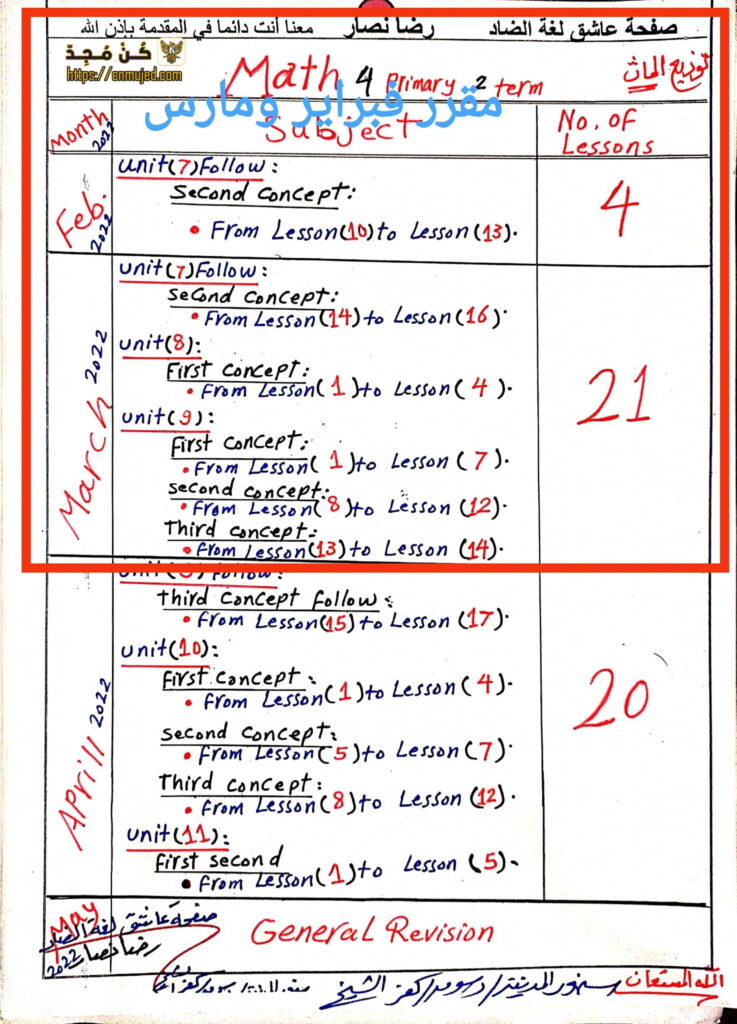 صفحة عاشق لغة الضاد رضا نصار معنا أنت دائما في المقدمة بإذن الله
كُنْ مُجِدّ
https://cnmujed.com
توزيع الماث
Math 4 Primary 2 term
مقرر فبراير ومارس
Month 2022
Subject
No. of Lessons
Feb. 2022
unit(7)Follow:
Second concept:
• From Lesson(10)to Lesson(13).
4
March 2022
unit(7)Follow:
second concept:
• From Lesson(14)to Lesson(16).
unit(8):
First concept:
• From Lesson(1)to Lesson(4).
unit(9):
First concept:
• From Lesson(1)to Lesson(7).
second concept:
• From Lesson(8)to Lesson(12).
Third concept:
• From Lesson(13)to Lesson(14).
21
Aprill 2022
Follow:
Third concept follow:
• From Lesson(15)to Lesson(17).
unit(10):
First concept:
• From Lesson(1)to Lesson(4).
second concept:
• From Lesson(5)to Lesson(7).
Third concept:
• From Lesson(8)to Lesson(12).
unit(11):
First second
• From Lesson(1)to Lesson(5).
20
May 2022
General Revision
صفحة عاشق لغة الضاد
رضا نصار
الله المستعان
سنهور المدينة/دسوق/كفر الشيخ